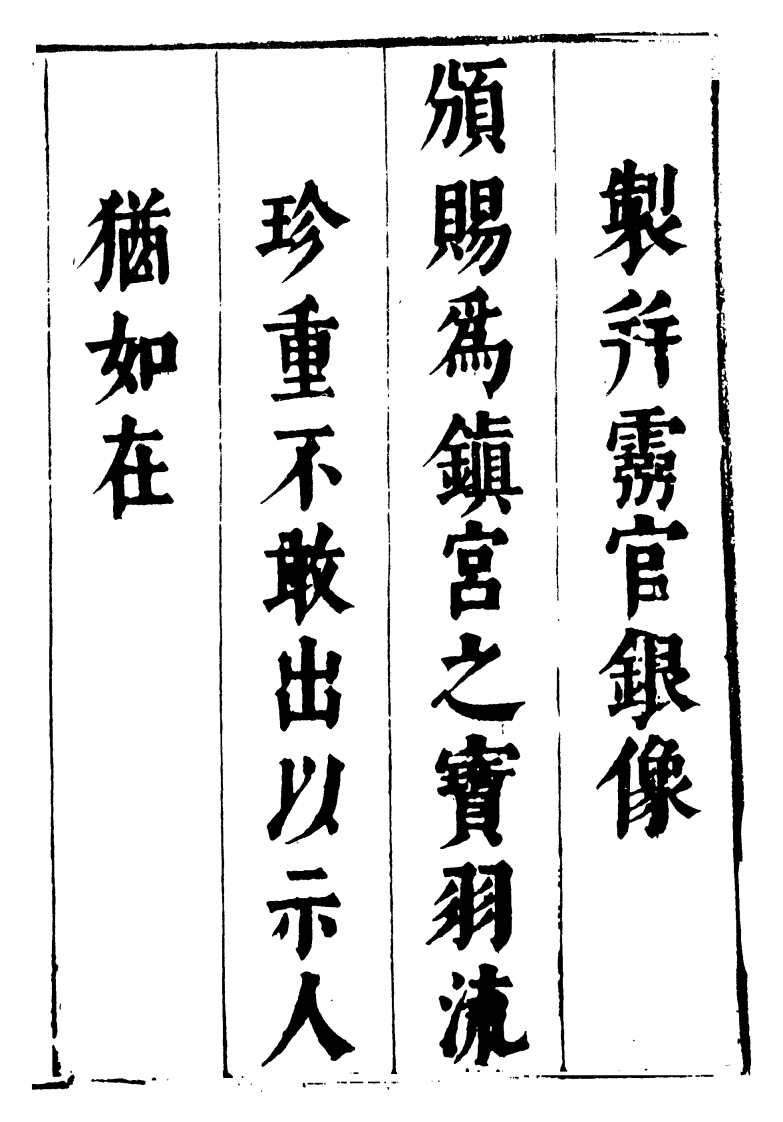 製幷靈官銀像
頒賜爲鎭宮之寶羽流
珍重不敢出以示人
猶如在